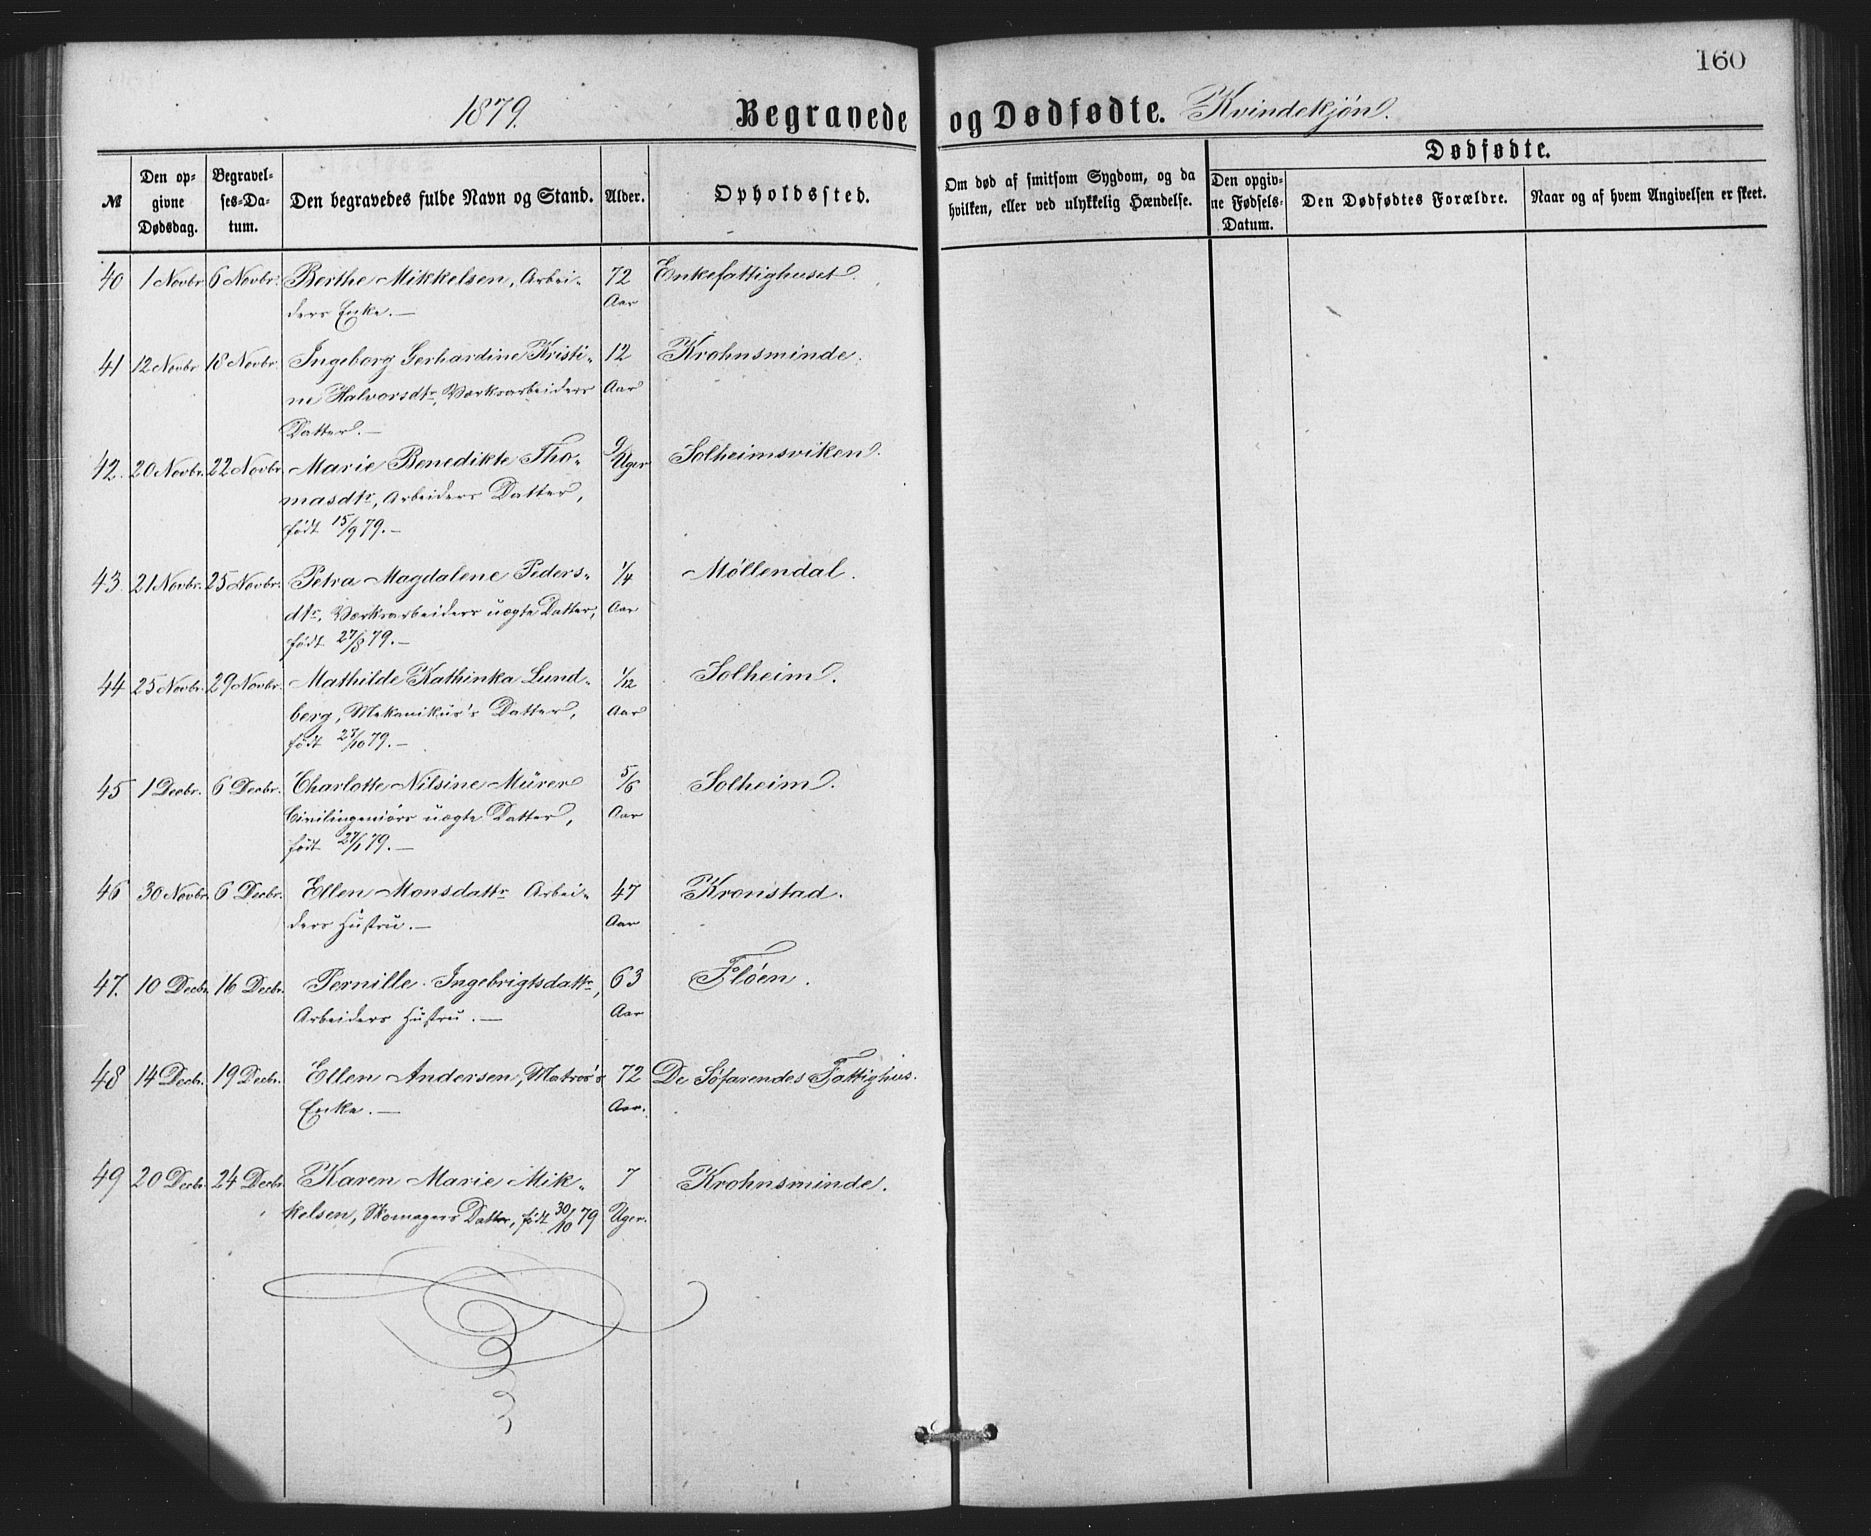 160
1879. Begravede og Dødfødte. Kvindekjøn.
№
Den op-
givne
Dødsdag.
Begravel-
ses-Da-
tum.
Den begravedes fulde Navn og Stand.
Alder.
Opholdssted.
Om død af smitsom Sygdom, og da
hvilken, eller ved ulykkelig Hændelse.
Dødfødte.
Den opgiv-
ne Fødsels-
Datum.
Den Dødfødtes Forældre.
Naar og af hvem Angivelsen er skeet.
40 1 Novbr 6 Novbr. Berthe Mikkelsen, Arbei- 72 Enkefattighuset.
ders Enke. — Aar
41 12 Novbr 18 Novbr. Ingeborg Gerhardine Kristi- 12 Krohnsminde.
ne Halvorsdtr, Værksarbeiders Aar
Datter. —
42. 20 Novbr. 22 Novbr. Marie Benedikte Tho- 9 Solheimsviken.
masdtr, Arbeiders Datter, Uger
født 15/9 79. —
43 21 Novbr. 25 Novbr. Petra Magdalene Peders- 1/4 Møllendal.
dtr, Værksarbeiders uægte Datter, Aar
født 27/8 79. —
44 25 Novbr. 29 Novbr. Mathilde Kathinka Lund- 1/12 Solheim.
berg, Mekanikus's Datter, Aar
født 27/10 79. —
45 1 Decbr. 6 Decbr. Charlotte Nilsine Mürer 5/6 Solheim.
Civilingeniørs uægte Datter, Aar
født 27/1 79. —
46 30 Novbr. 6 Decbr. Ellen Monsdattr Arbei- 47 Kronstad.
ders Hustru. — Aar
47. 10 Decbr. 16 Decbr. Pernille Ingebrigtsdattr, 63 Fløen.
Arbeiders Hustru. — Aar
48 14 Decbr. 19 Decbr. Ellen Andersen, Matros's 72 De Søfarendes Fattighus.
Enke. — Aar.
49 20 Decbr. 24 Decbr Karen Marie Mik- 7 Krohnsminde.
kelsen, Skomagers Datter, født 30/10 79 Uger.